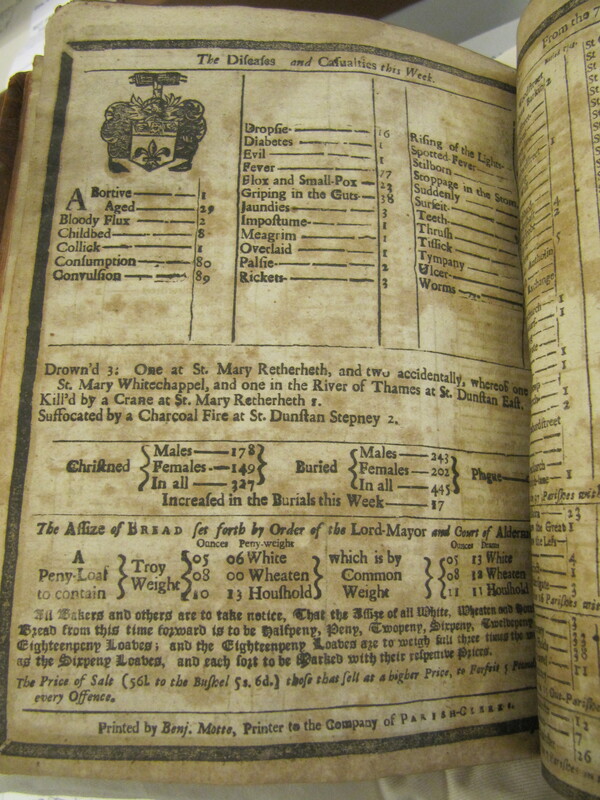 The Diseases and Casualties this Week.
Abortive 1
Aged 29
Bloody Flux 2
Childbed 8
Collick 1
Consumption 80
Convulsion 89
Dropsie 16
Diabetes 1
Evil 1
Fever 77
Flox and Small-Pox 23
Griping in the Guts 38
Jaundies 3
Impostume 1
Meagrim 1
Overlaid 1
Palsie 2
Rickets 3
Rising of the Lights
Spotted Fever
Stilborn
Stoppage in the
Suddenly
Surfeit
Teeth
Thrush
Tissick
Tympany
Ulcer
Worms
Drown'd 3: One at St. Mary Retherheth, and two accidentally, whereof one
St. Mary Whitechappel, and one in the River of Thames at St. Dunstan East.
Kill'd by a Crane at St. Mary Retherheth 1.
Suffocated by a Charcoal Fire at St. Dunstan Stepney 2.
Christned Males 178 Females 149 In all 327
Buried Males 243 Females 202 In all 445 Plague
Increased in the Burials this Week 17
The Assize of BREAD set forth by Order of the Lord-Mayor and Court of
Ounces Peny-weight Ounces Drams
A Peny-Loaf to contain Troy Weight 05 06 White which is by Common Weight 05 13 White
08 00 Wheaten 08 12 Wheaten
10 13 Houshold 11 11 Houshold
All Bakers and others are to take notice, That the Assize of all White, Wheaten and
Bread from this time forward is to be Halfpeny, Peny, Twopeny, Sixpeny, Twelvepeny
Eighteenpeny Loaves; and the Eighteenpeny Loaves are to weigh full three times the
as the Sixpeny Loaves, and each sort to be Marked with their respetive Prices.
The Price of Sale (56l. to the Bushel 5s. 6d.) those that sell at a higher Price, to Forfeit 5
every Offence.
Printed by Benj. Motte, Printer to the Company of PARISH-CLERKS.
From the 7